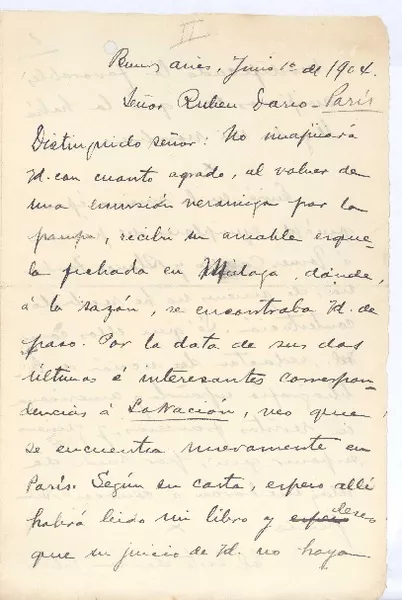 II
Buenos Aires, Junio 1º de 1904.
Señor Ruben Dario - Paris
Distinguido señor: No imajinará
Vd. con cuanto agrado, al volver de
una escursión veraniega por la
pampa, recibí su amable esque-
la fechada en Málaga, donde,
á la sazón, se encontraba Vd. de
paso. Por la data de sus dos
últimas é interesantes correspon-
dencias á La Nación, veo que
se encuentra nuevamente en
Paris. Según su carta, espero allí
habrá leido mi libro y deseo
que su juicio de Vd. no haya